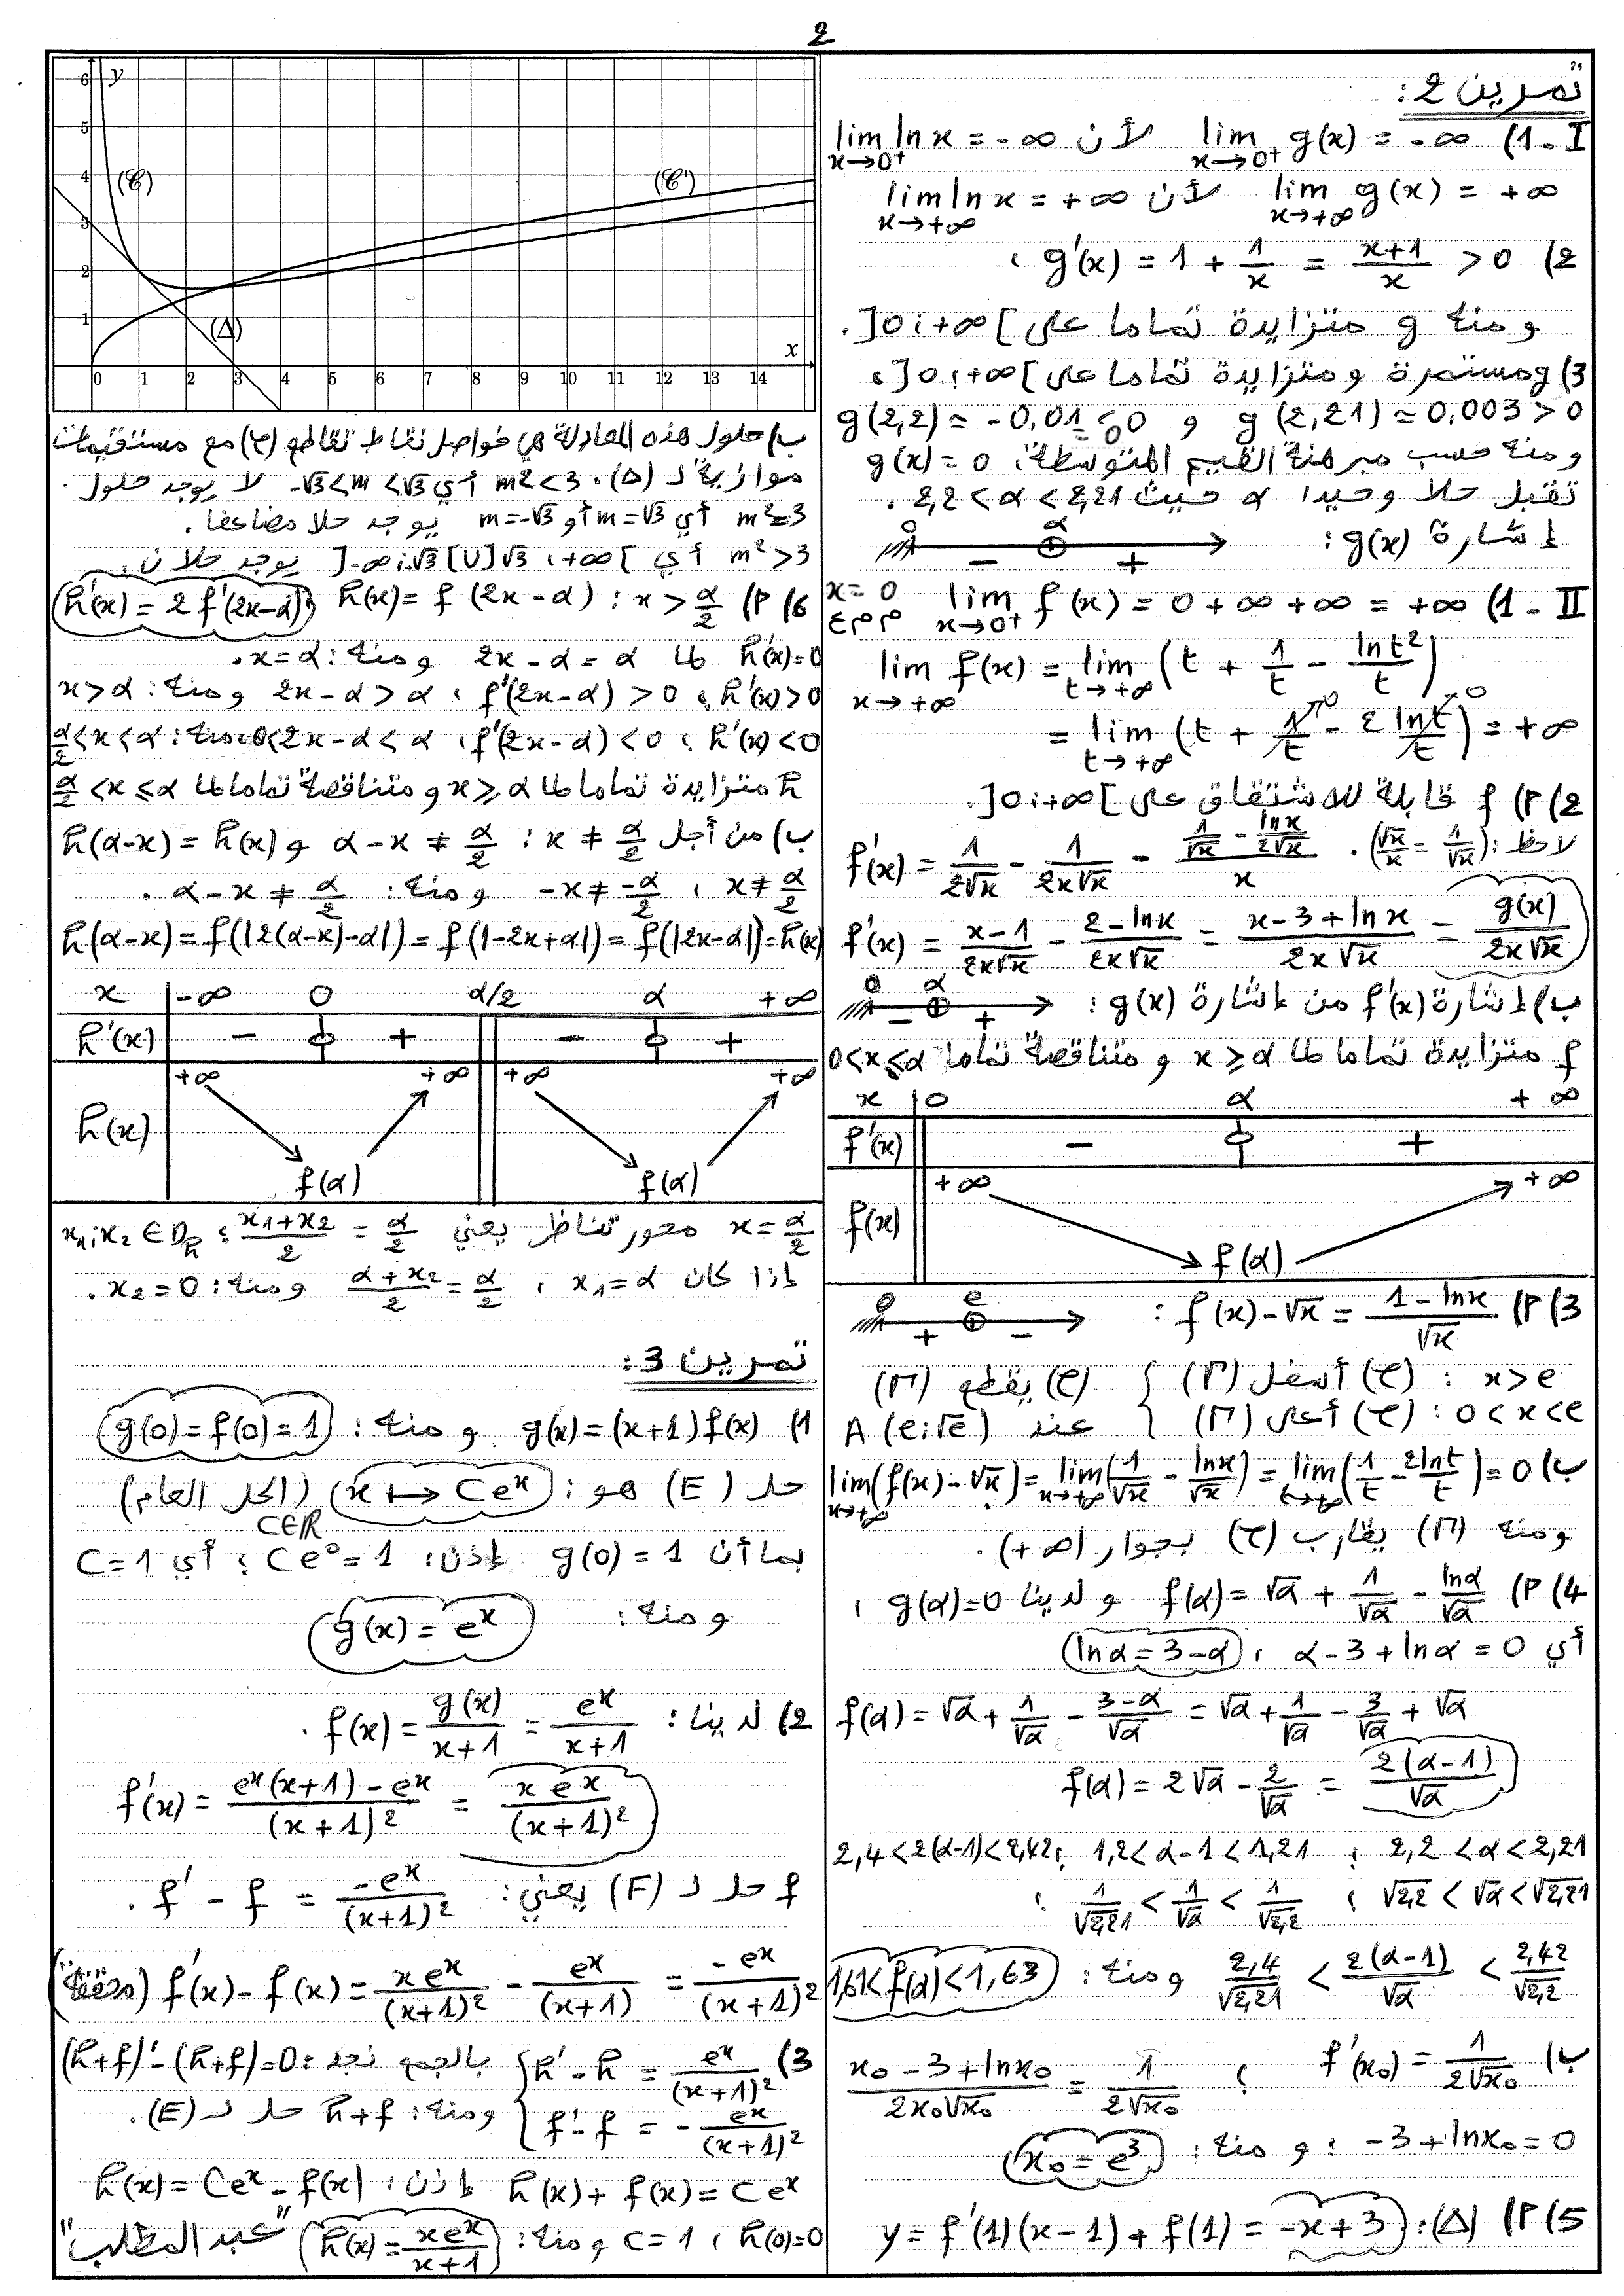 2
تمرين 2:
I - 1) lim x→0⁺ g(x) = -∞ لأن lim x→0⁺ ln x = -∞
lim x→+∞ g(x) = +∞ لأن lim x→+∞ ln x = +∞
2) g'(x) = 1 + 1/x = (x+1)/x > 0 ،
و منه g متزايدة تماما على ]0;+∞[.
3) g مستمرة و متزايدة تماما على ]0;+∞[،
g(2,21) ≃ 0,003 > 0 و g(2,2) ≃ -0,01 < 0
و منه حسب مبرهنة القيم المتوسطة: g(x) = 0
تقبل حلا وحيدا α حيث 2,2 < α < 2,21 .
إشارة g(x) : 0 - α +
II - 1) lim x→0⁺ f(x) = 0 + ∞ + ∞ = +∞ x = 0 م م ع
lim x→+∞ f(x) = lim t→+∞ (t + 1/t - ln t²/t)
= lim t→+∞ (t + 1/t - 2 ln t/t) = +∞
2) أ) f قابلة للاشتقاق على ]0;+∞[.
لاحظ: (√x/x = 1/√x) . f'(x) = 1/(2√x) - 1/(2x√x) - (1/√x - ln x/(2√x))/x
f'(x) = (x-1)/(2x√x) - (2-ln x)/(2x√x) = (x-3+ln x)/(2x√x) = g(x)/(2x√x)
ب) إشارة f'(x) من إشارة g(x) : 0 - α +
f متزايدة تماما لما x ≥ α و متناقصة تماما 0<x≤α
x 0 α +∞
f'(x) - 0 +
f(x) +∞ f(α) +∞
3) أ) f(x) - √x = (1 - ln x)/√x : 0 + e -
x > e : (C) أسفل (Γ) } (C) يقطع (Γ)
0 < x < e : (C) أعلى (Γ) } عند A (e;√e)
ب) lim x→+∞ (f(x) - √x) = lim x→+∞ (1/√x - ln x/√x) = lim t→+∞ (1/t - 2ln t/t) = 0
و منه (Γ) يقارب (C) بجوار (+∞).
4) أ) f(α) = √α + 1/√α - ln α/√α و لدينا g(α)=0 ،
أي α - 3 + ln α = 0 ، ln α = 3-α
f(α) = √α + 1/√α - (3-α)/√α = √α + 1/√α - 3/√α + √α
f(α) = 2√α - 2/√α = 2(α-1)/√α
2,2 < α < 2,21 ؛ 1,2 < α-1 < 1,21 ؛ 2,4 < 2(α-1) < 2,42 ؛
√2,2 < √α < √2,21 ؛ 1/√2,21 < 1/√α < 1/√2,2 ؛
2,4/√2,21 < 2(α-1)/√α < 2,42/√2,2 و منه: 1,61 < f(α) < 1,63
ب) f'(x₀) = 1/(2√x₀) ؛ (x₀ - 3 + ln x₀)/(2x₀√x₀) = 1/(2√x₀)
-3 + ln x₀ = 0 ؛ و منه: x₀ = e³
5) أ) (Δ): y = f'(1)(x-1) + f(1) = -x+3
y
6
5
4
3
2
1
(C)
(C')
(Δ)
x
0 1 2 3 4 5 6 7 8 9 10 11 12 13 14
ب) حلول هذه المعادلة هي فواصل نقاط تقاطع (C) مع مستقيمات
موازية لـ (Δ). m² < 3 أي -√3 < m < √3 لا يوجد حلول .
m² = 3 أي m = √3 أو m = -√3 يوجد حلا مضاعفا.
m² > 3 أي ]-∞;-√3[ U ]√3;+∞[ يوجد حلان .
6) أ) x > α/2 : h(x) = f(2x - α) ، h'(x) = 2f'(2x-α)
h'(x)=0 لما 2x - α = α و منه: x = α.
h'(x) > 0 ، f'(2x-α) > 0 ، 2x - α > α و منه: x > α
h'(x) < 0 ؛ f'(2x-α) < 0 ؛ 0<2x-α < α و منه: α/2 < x < α
h متزايدة تماما لما x ≥ α و متناقصة تماما لما α/2 < x ≤ α
ب) من أجل x ≠ α/2 : α - x ≠ α/2 و h(α-x) = h(x)
x ≠ α/2 ، -x ≠ -α/2 و منه: α - x ≠ α/2 .
h(α-x) = f(|2(α-x)-α|) = f(|-2x+α|) = f(|2x-α|) = h(x)
x -∞ 0 α/2 α +∞
h'(x) - 0 + - 0 +
h(x) +∞ f(α) +∞ +∞ f(α) +∞
x = α/2 محور تناظر يعني (x₁+x₂)/2 = α/2 ؛ x₁;x₂ ∈ D_h
إذا كان x₁ = α ، (α+x₂)/2 = α/2 و منه: x₂ = 0 .
تمرين 3:
1) g(x) = (x+1)f(x) و منه: g(0) = f(0) = 1
حل (E) هو: x ↦ Ceˣ (الحل العام)
C∈ℝ
بما أن g(0) = 1 إذن: Ce⁰ = 1 ؛ أي C = 1
و منه: g(x) = eˣ
2) لدينا: f(x) = g(x)/(x+1) = eˣ/(x+1) .
f'(x) = (eˣ(x+1) - eˣ)/(x+1)² = x eˣ/(x+1)²
f حل لـ (F) يعني: f' - f = -eˣ/(x+1)² .
f'(x) - f(x) = x eˣ/(x+1)² - eˣ/(x+1) = -eˣ/(x+1)² (محققة)
3) { h' - h = eˣ/(x+1)² بالجمع نجد: (h+f)' - (h+f) = 0
{ f' - f = -eˣ/(x+1)² و منه: h+f حل لـ (E).
h(x) + f(x) = Ceˣ إذن: h(x) = Ceˣ - f(x)
h(0)=0 ، C = 1 و منه: h(x) = xeˣ/(x+1) "عبد المطلب"